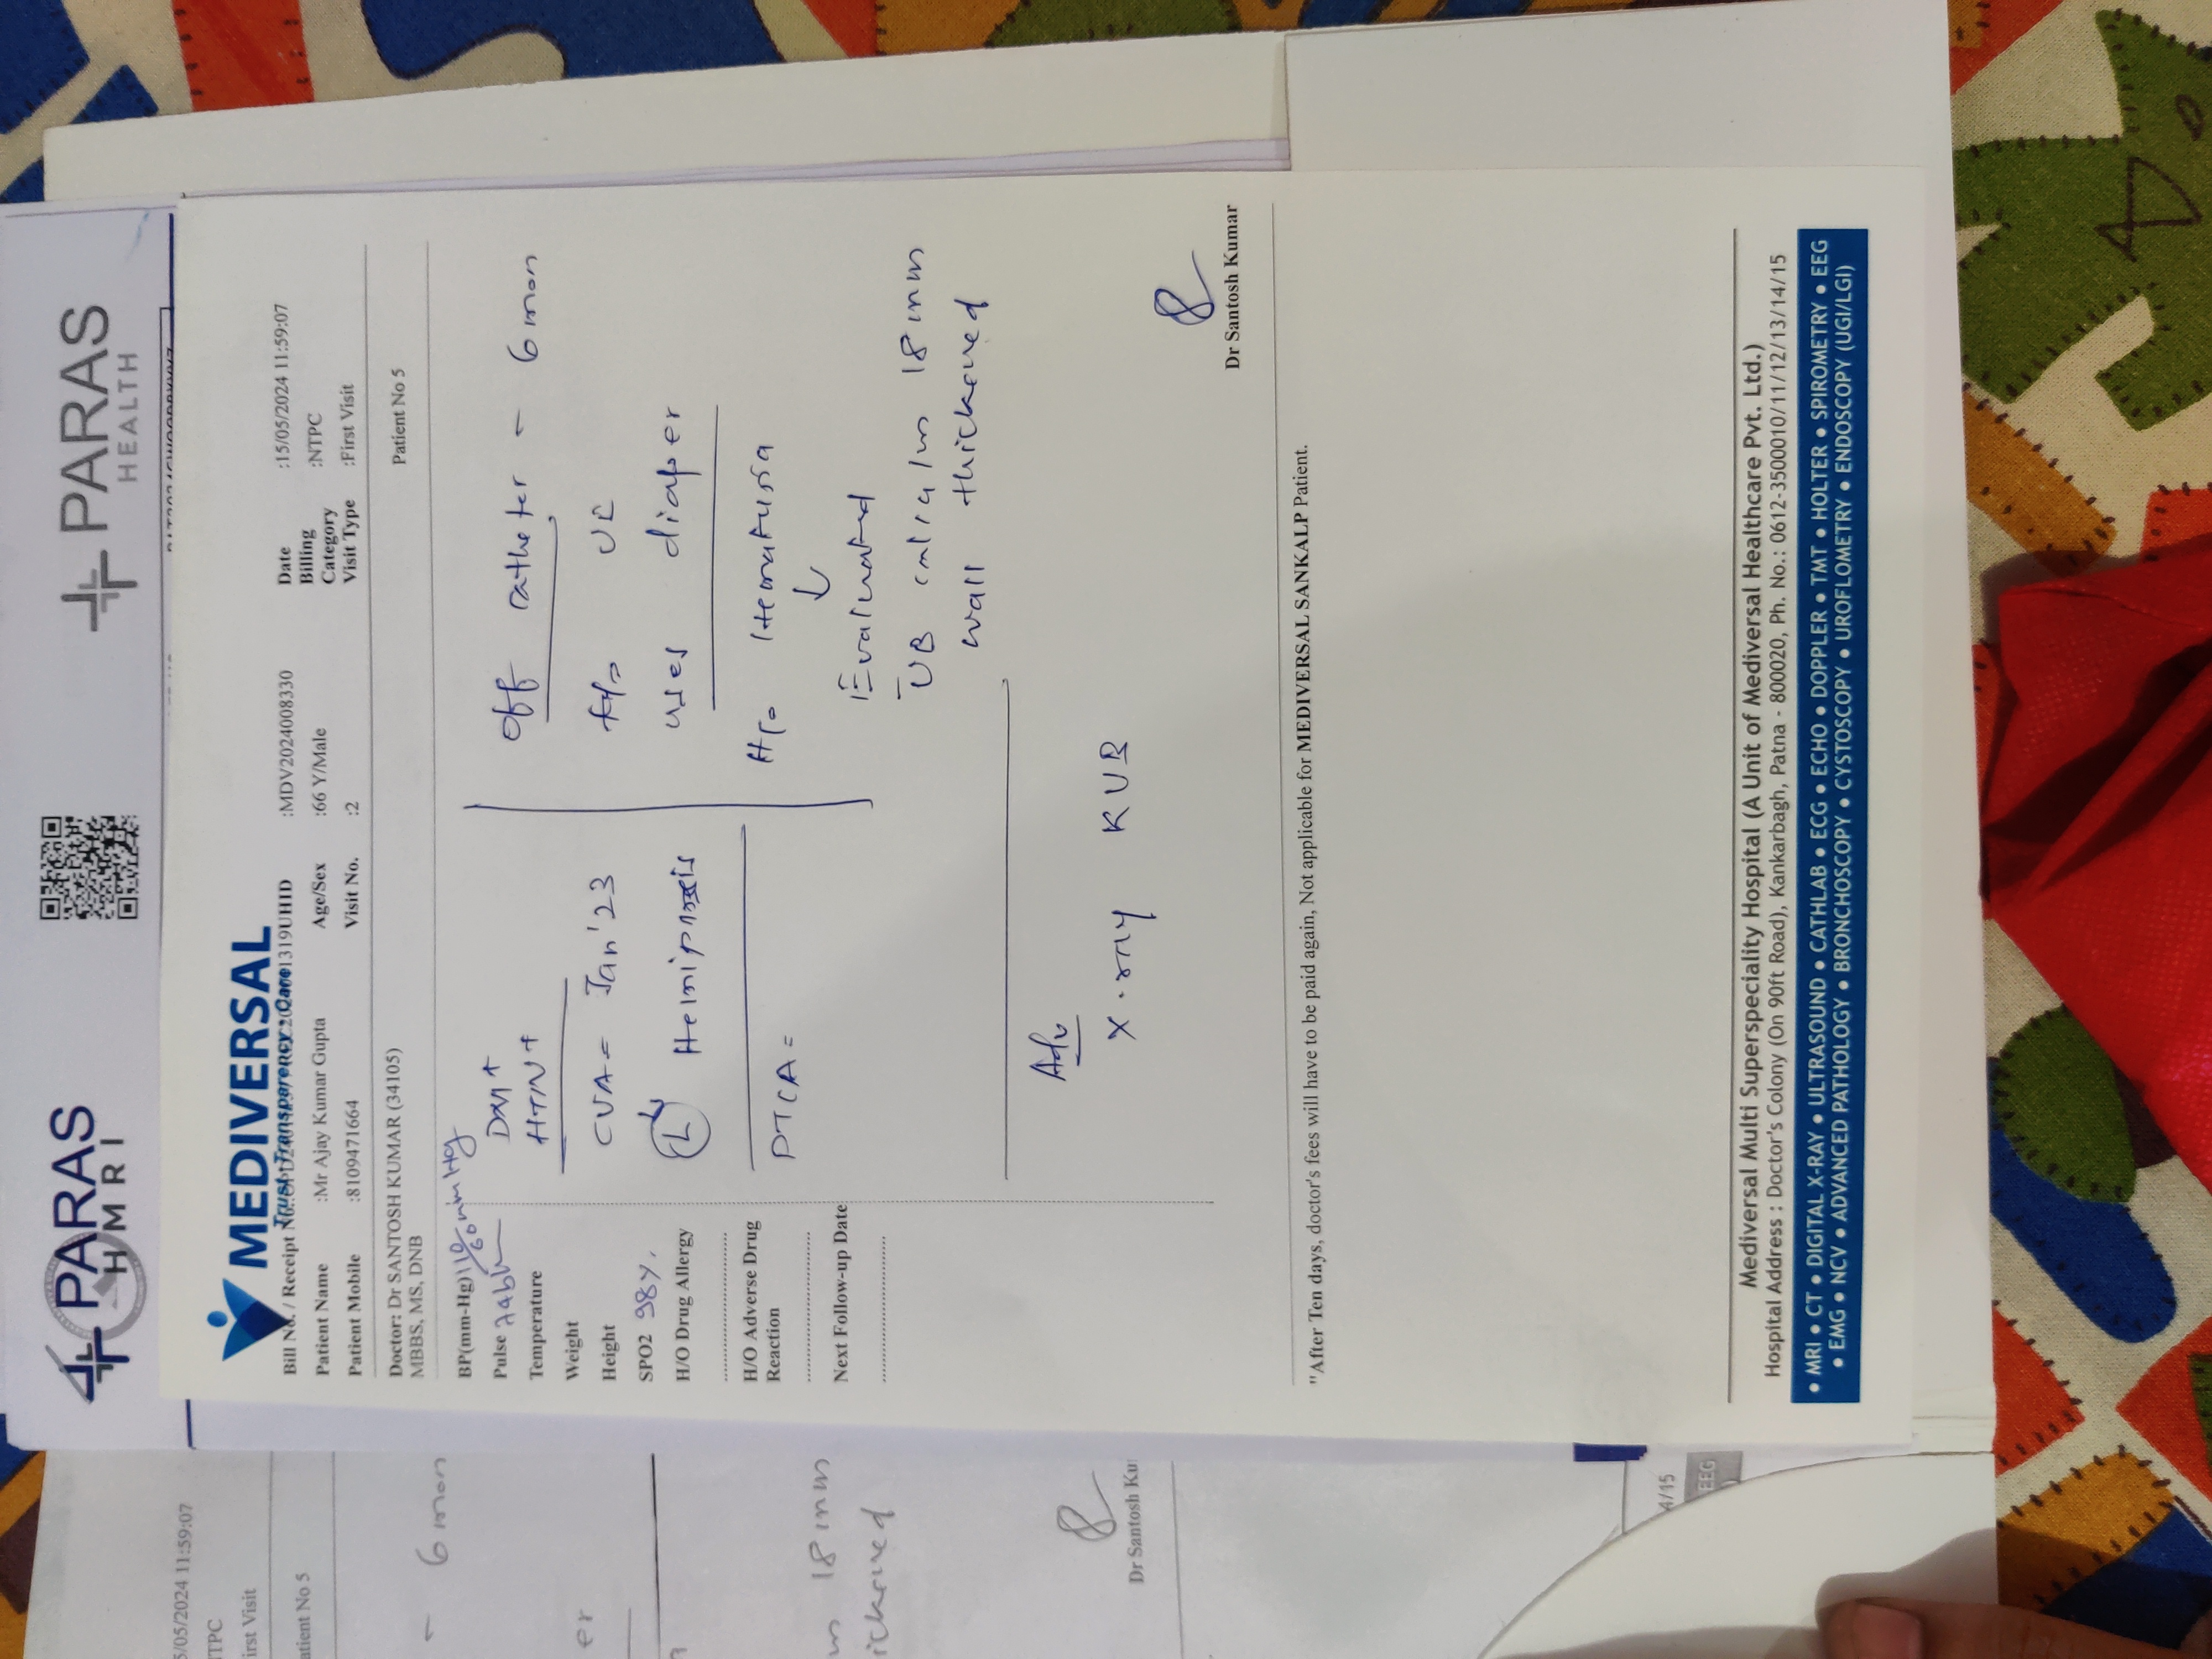 PARAS
HMRI
PARAS
HEALTH
MEDIVERSAL
Trust Transparency Care
Bill No. / Receipt No. UHID :MDV2024008330 Date :15/05/2024 11:59:07
Billing :NTPC
Patient Name :Mr Ajay Kumar Gupta Age/Sex :66 Y/Male Category
Patient Mobile :8109471664 Visit No. :2 Visit Type :First Visit
Doctor: Dr SANTOSH KUMAR (34105) Patient No 5
MBBS, MS, DNB
BP(mm-Hg) 110/60 mmHg
Pulse
Temperature
Weight
Height
SPO2 98%.
H/O Drug Allergy
H/O Adverse Drug
Reaction
Next Follow-up Date
DM+
HTN+
CVA = Jan'23
(L) Hemiparesis
PTCA =
off catheter - 6 mon
uses diaper
H/o Hematuria
↓
Evaluated
UB calculus 18 mm
wall thickened
Adv
X.ray KUB
Dr Santosh Kumar
"After Ten days, doctor's fees will have to be paid again, Not applicable for MEDIVERSAL SANKALP Patient.
Mediversal Multi Superspeciality Hospital (A Unit of Mediversal Healthcare Pvt. Ltd.)
Hospital Address : Doctor's Colony (On 90ft Road), Kankarbagh, Patna - 800020, Ph. No.: 0612-3500010/11/12/13/14/15
• MRI • CT • DIGITAL X-RAY • ULTRASOUND • CATHLAB • ECG • ECHO • DOPPLER • TMT • HOLTER • SPIROMETRY • EEG
• EMG • NCV • ADVANCED PATHOLOGY • BRONCHOSCOPY • CYSTOSCOPY • UROFLOMETRY • ENDOSCOPY (UGI/LGI)
5/05/2024 11:59:07
TPC
irst Visit
atient No 5
- 6 mon
er
18 mm
ickened
Dr Santosh Ku
4/15
EEG